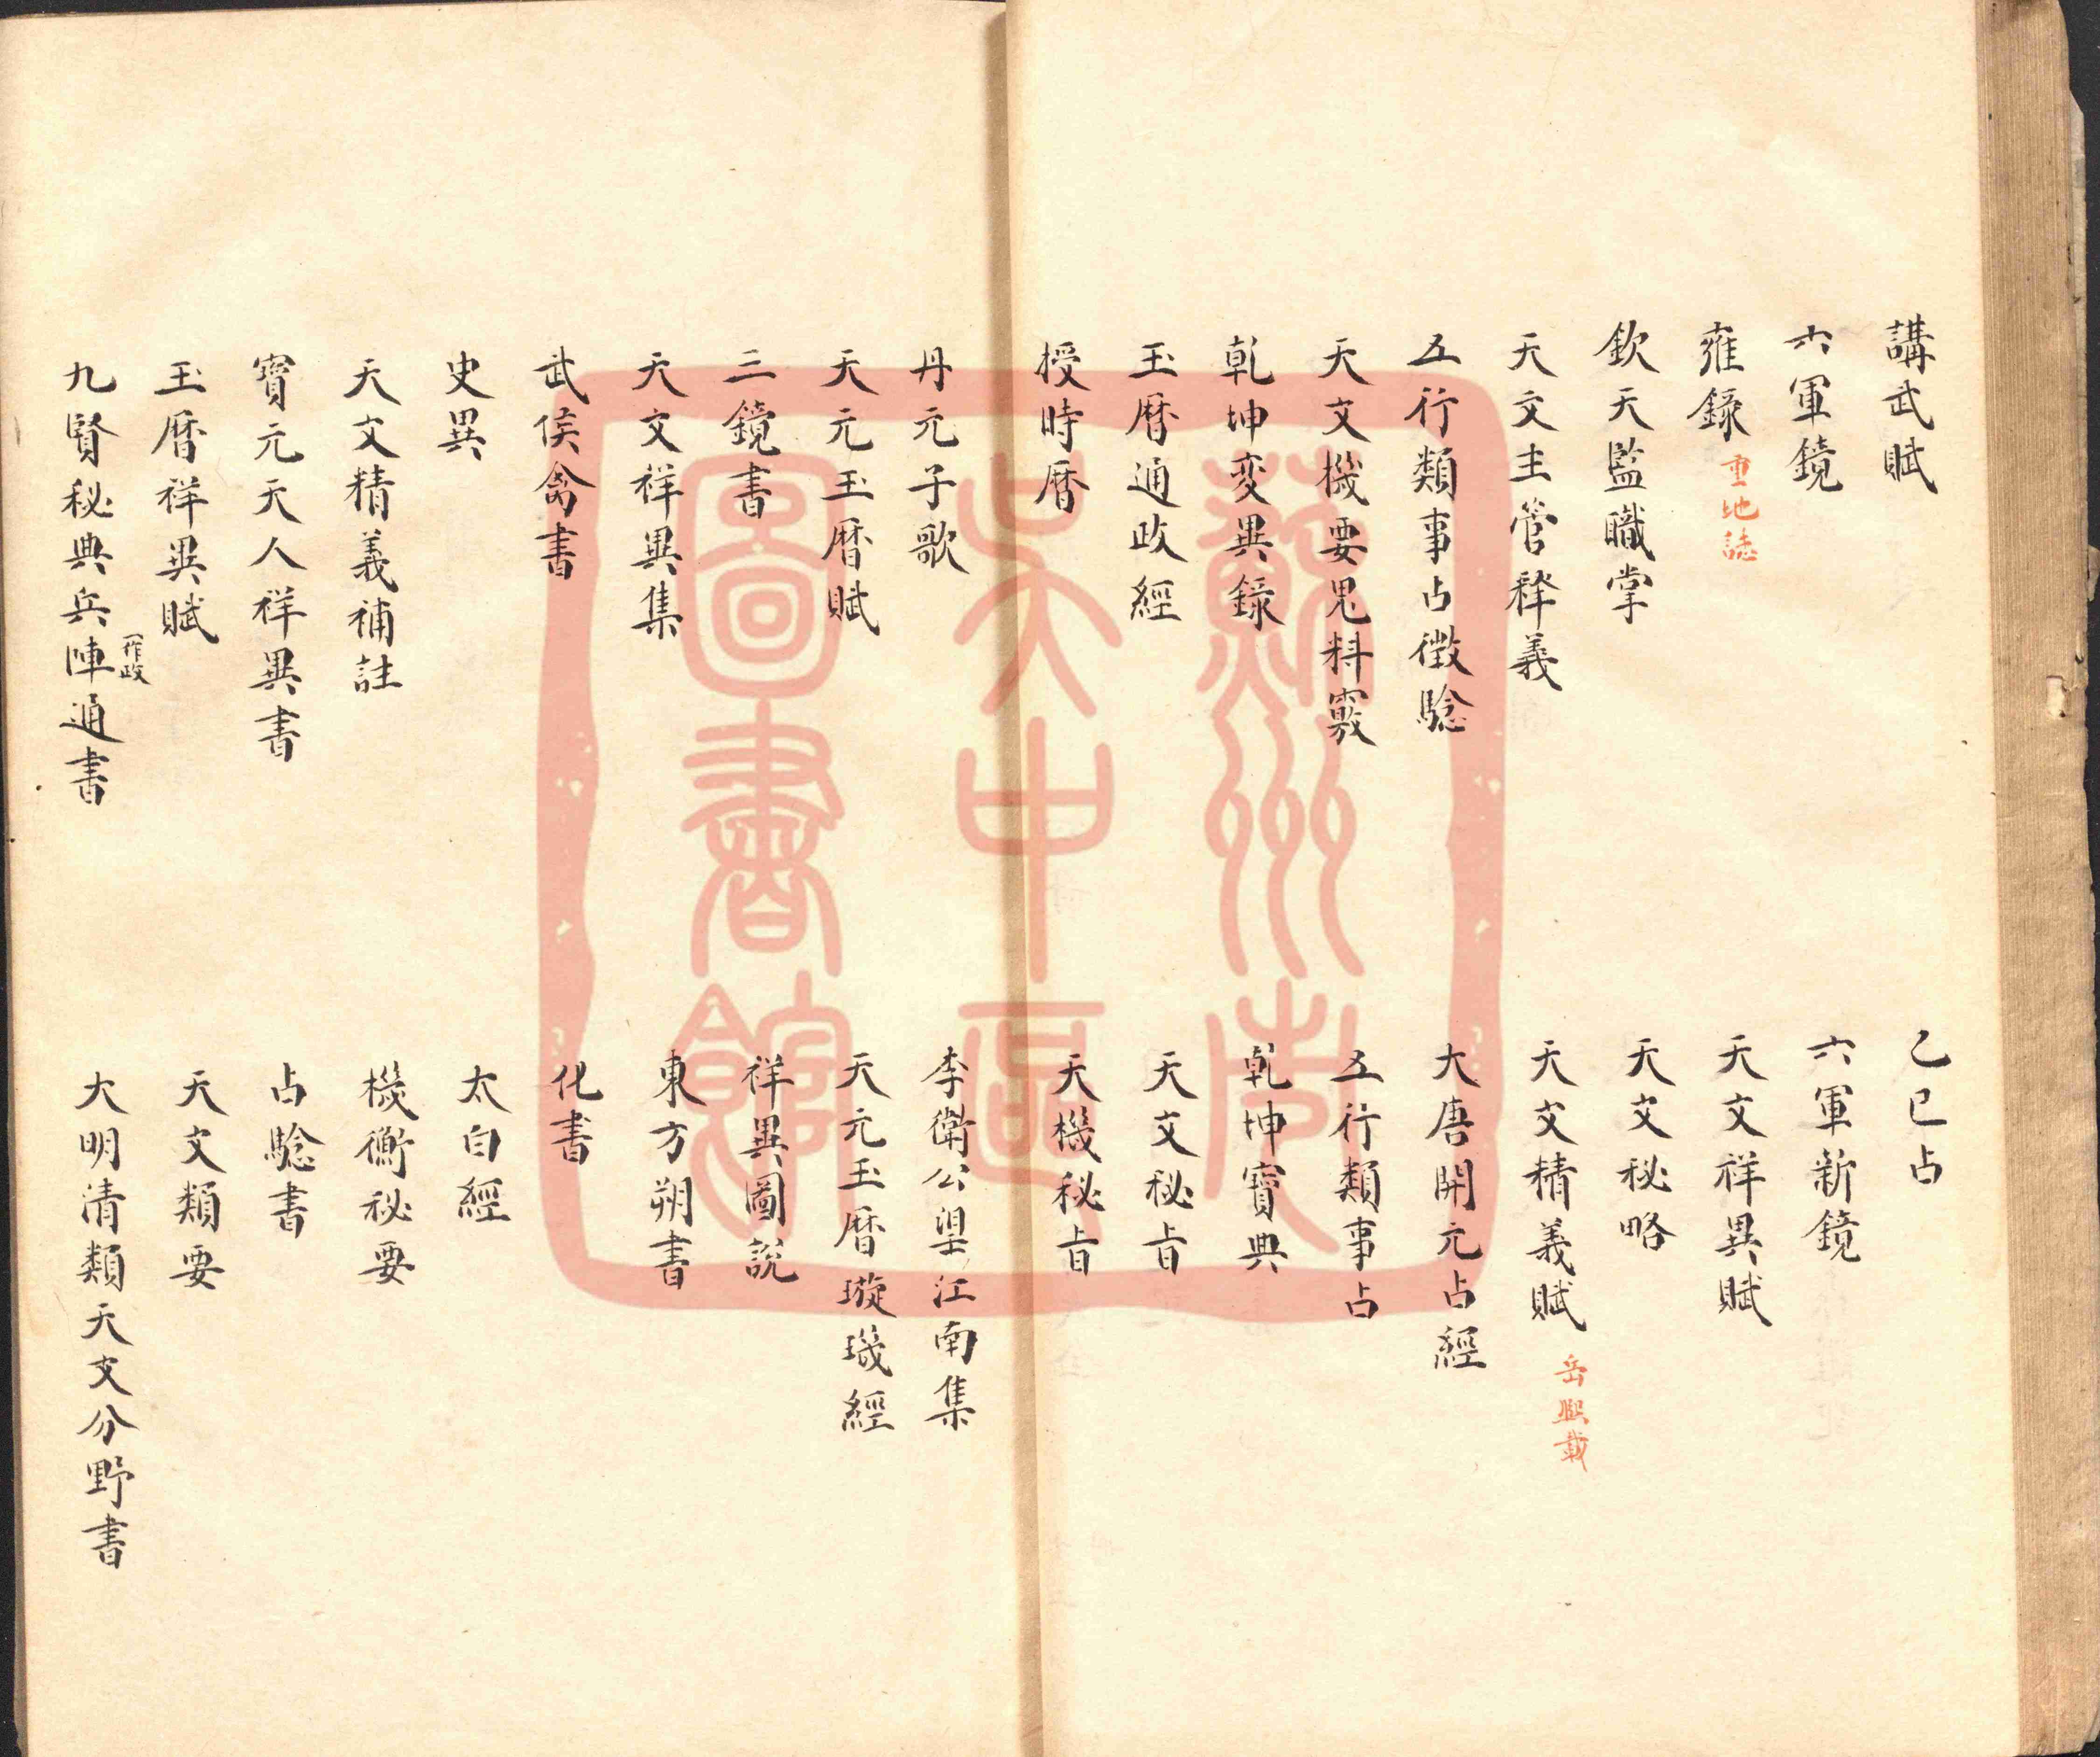 講武賦
乙巳占
六軍鏡
六軍新鏡
雍錄 重地誌
天文祥異賦
欽天監職掌
天文秘略
天文主管释義
天文精義賦 岳熙載
五行類事占徵驗
大唐開元占經
天文機要鬼料竅
五行類事占
乾坤变異錄
乾坤寶典
玉曆通政經
天文秘旨
授時曆
天機秘旨
丹元子歌
李衛公望江南集
天元玉曆賦
天元玉曆璇璣經
三鏡書
祥異圖說
天文祥異集
東方朔書
武侯禽書
化書
史異
太白經
天文精義補註
機衡秘要
寶元天人祥異書
占驗書
玉曆祥異賦
天文類要
九賢秘典兵陣通書 一作政
大明清類天文分野書
蘇州市
吴中區
圖書館